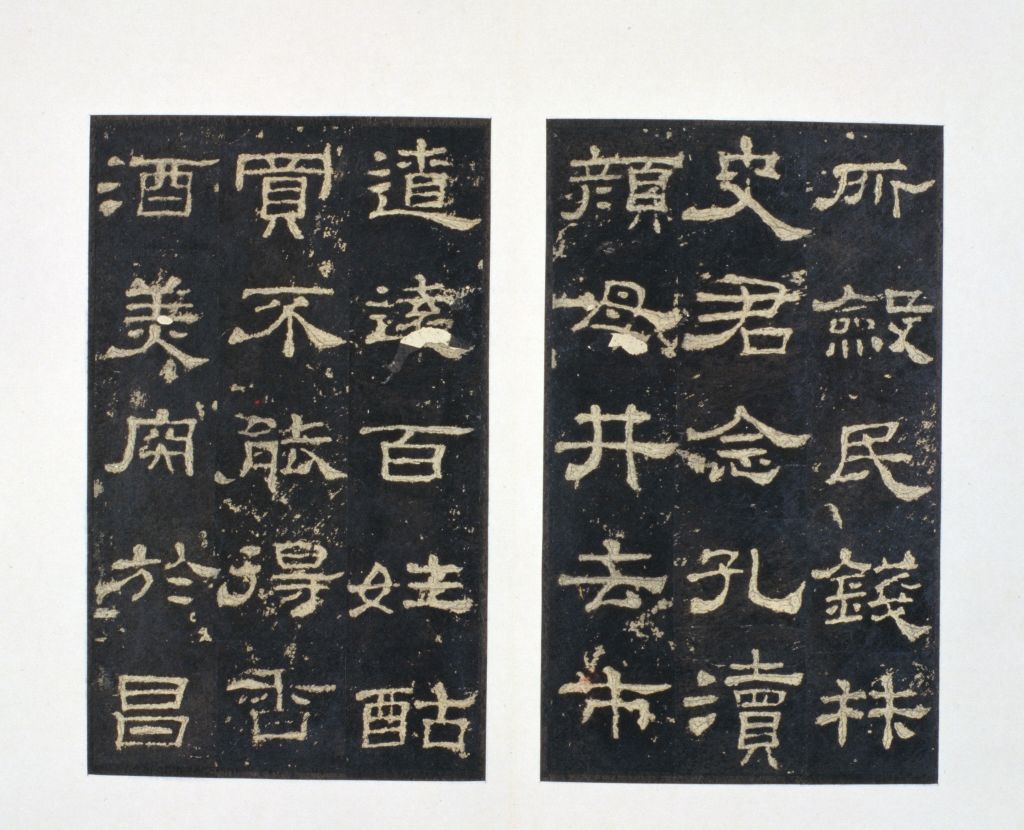 所斂民錢材
史君念孔瀆
顏母井去市
遼遠百姓酤
買不能得香
酒美肉於昌